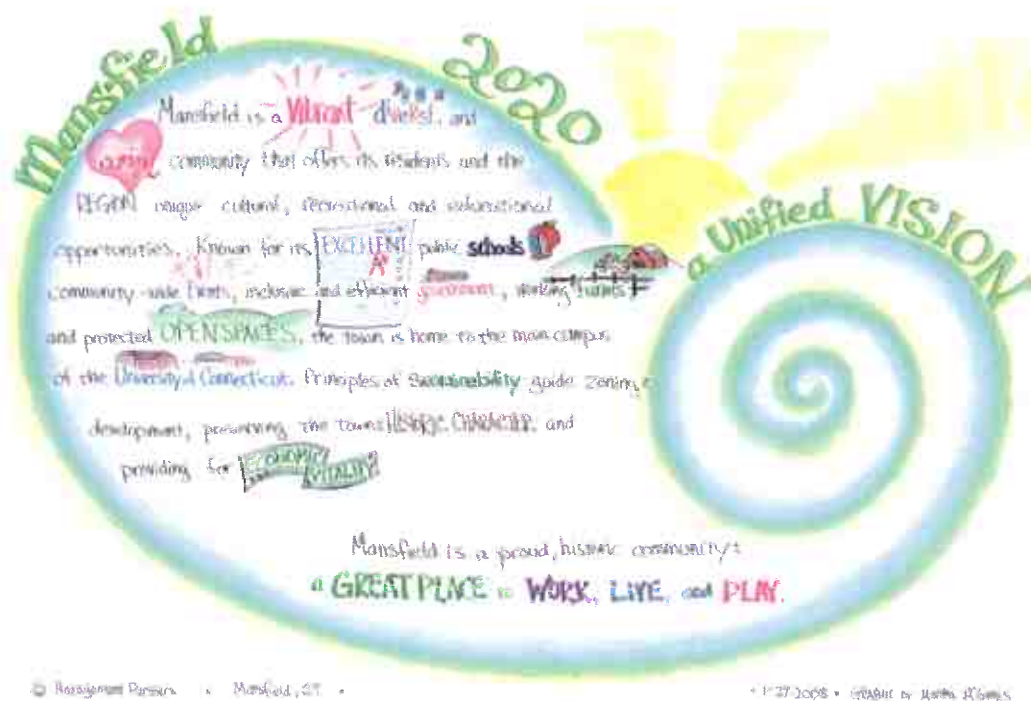 Mansfield 2020
a Unified VISION
Mansfield is a Vibrant diverse, and
caring community that offers its residents and the
REGION unique cultural, recreational and educational
opportunities. Known for its EXCELLENT public schools
community-wide Events, inclusive and efficient government, working farms
and protected OPEN SPACES, the town is home to the main campus
of the University of Connecticut. Principles of Sustainability guide zoning &
development, preserving the town's HISTORIC CHARACTER, and
providing for ECONOMIC VITALITY
Mansfield is a proud, historic community:
a GREAT PLACE to WORK, LIVE, and PLAY.
© Management Partners • Mansfield, CT •
2008 • GRAPHIC by Martha